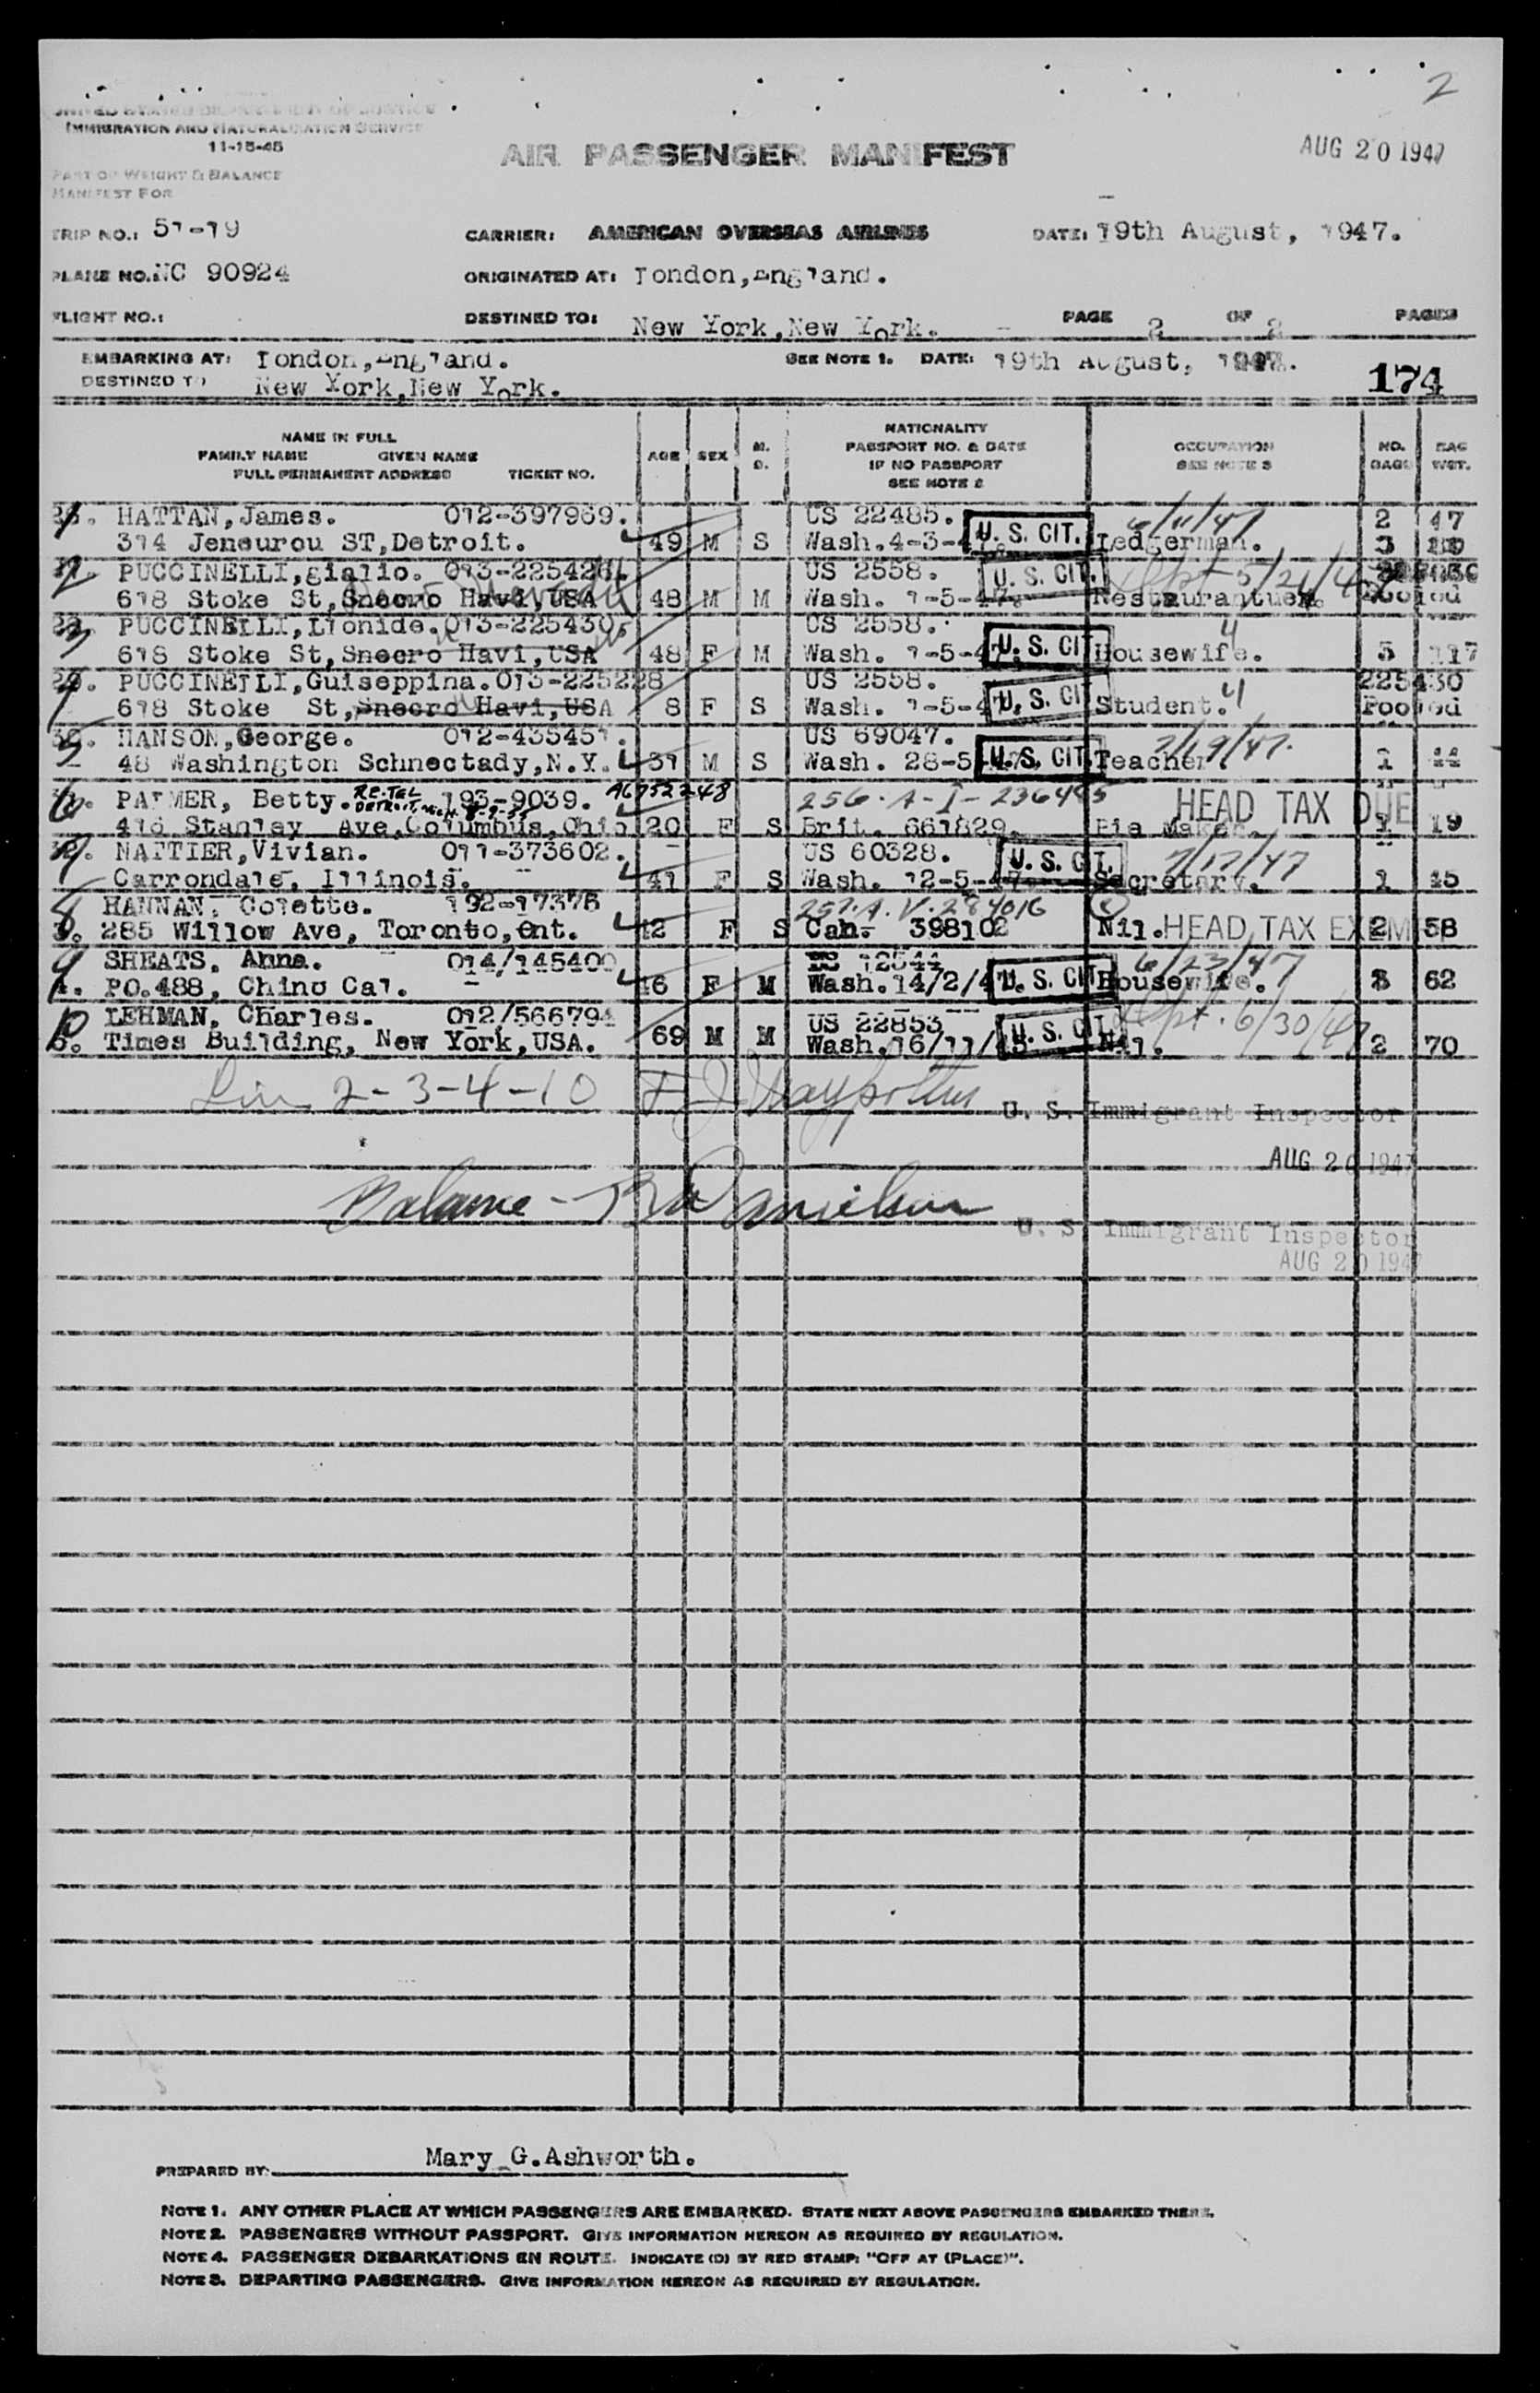 2
UNITED STATES DEPARTMENT OF JUSTICE
IMMIGRATION AND NATURALIZATION SERVICE
11-15-45
AIR PASSENGER MANIFEST
AUG 20 1947
PART OF WEIGHT & BALANCE
MANIFEST FOR
TRIP NO.: 51-19 CARRIER: AMERICAN OVERSEAS AIRLINES DATE: 19th August, 1947.
PLANE NO.: NC 90924 ORIGINATED AT: London,England.
FLIGHT NO.: DESTINED TO: New York,New York. PAGE 2 OF 2 PAGES
EMBARKING AT: London,England. SEE NOTE 1. DATE: 19th August, 1947.
DESTINED TO New York,New York. 174
NAME IN FULL
FAMILY NAME GIVEN NAME
FULL PERMANENT ADDRESS TICKET NO.
AGE SEX M. S.
NATIONALITY
PASSPORT NO. & DATE
IF NO PASSPORT
SEE NOTE 2
OCCUPATION
SEE NOTE 3
NO. BAGS BAG WGT.
1 HATTAN,James. 012-397969. US 22485. 6/11/47 2 47
314 Jeneurou ST,Detroit. 49 M S Wash.4-3-47. U.S. CIT. Ledgerman. 3
2 PUCCINELLI,gialio. US 2558. U.S. CIT. Dept 5/21/47
618 Stoke St,Snecro Havi,USA 48 M M Wash. 1-5-47. Pooled
3 PUCCINELLI,Lionide.013-225430. US 2558. 4
618 Stoke St,Snecro Havi,USA 48 F M Wash. 1-5-47. U.S. CIT Housewife. 5 117
4 PUCCINELLI,Guiseppina.013-225228 US 2558. 225430
618 Stoke St,Snecro Havi,USA 8 F S Wash. 1-5-47 U.S. CIT Student. 4 Pooled
5 HANSON,George. 012-435451. US 69047. 7/19/47.
48 Washington Schnectady,N.Y. 31 M S Wash. 28-5-47. U.S. CIT. Teacher 1 44
6 PALMER, Betty. RE.TEL DETROIT, MICH. 193-9039. A6752248 256-A-I-236495 HEAD TAX DUE
418 Stanley Ave,Columbus,Ohio 20 F S Brit. 661829. Pie Maker. 1 19
7 NATTIER,Vivian. 011-373602. US 60328. U.S. CIT. 7/17/47
Carrondale, Illinois. 41 F S Wash. 12-5-47. Secretary. 1 45
8 HANNAN, Colette. 192-17376 257.A.V.284016
285 Willow Ave, Toronto,Ont. 42 F S Can. 398102 Nil. HEAD TAX EXEM 2 58
9 SHEATS, Anna. 014/145400 US 12544 6/23/47
PO.488, Chino Cal. 46 F M Wash.14/2/47. U.S. CIT Housewife. 3 62
10 LEHMAN, Charles. 012/566794 US 22853 Dept. 6/30/47
Times Building, New York,USA. 69 M M Wash.16/11/45 U.S. CIT. Nil. 2 70
Lin 2-3-4-10
U. S. Immigrant Inspector
AUG 20 1947
Balance - Danielson
U. S. Immigrant Inspector
AUG 20 1947
PREPARED BY: Mary G.Ashworth.
NOTE 1. ANY OTHER PLACE AT WHICH PASSENGERS ARE EMBARKED. STATE NEXT ABOVE PASSENGERS EMBARKED THERE.
NOTE 2. PASSENGERS WITHOUT PASSPORT. GIVE INFORMATION HEREON AS REQUIRED BY REGULATION.
NOTE 4. PASSENGER DEBARKATIONS EN ROUTE. INDICATE (D) BY RED STAMP: "OFF AT (PLACE)".
NOTE 3. DEPARTING PASSENGERS. GIVE INFORMATION HEREON AS REQUIRED BY REGULATION.